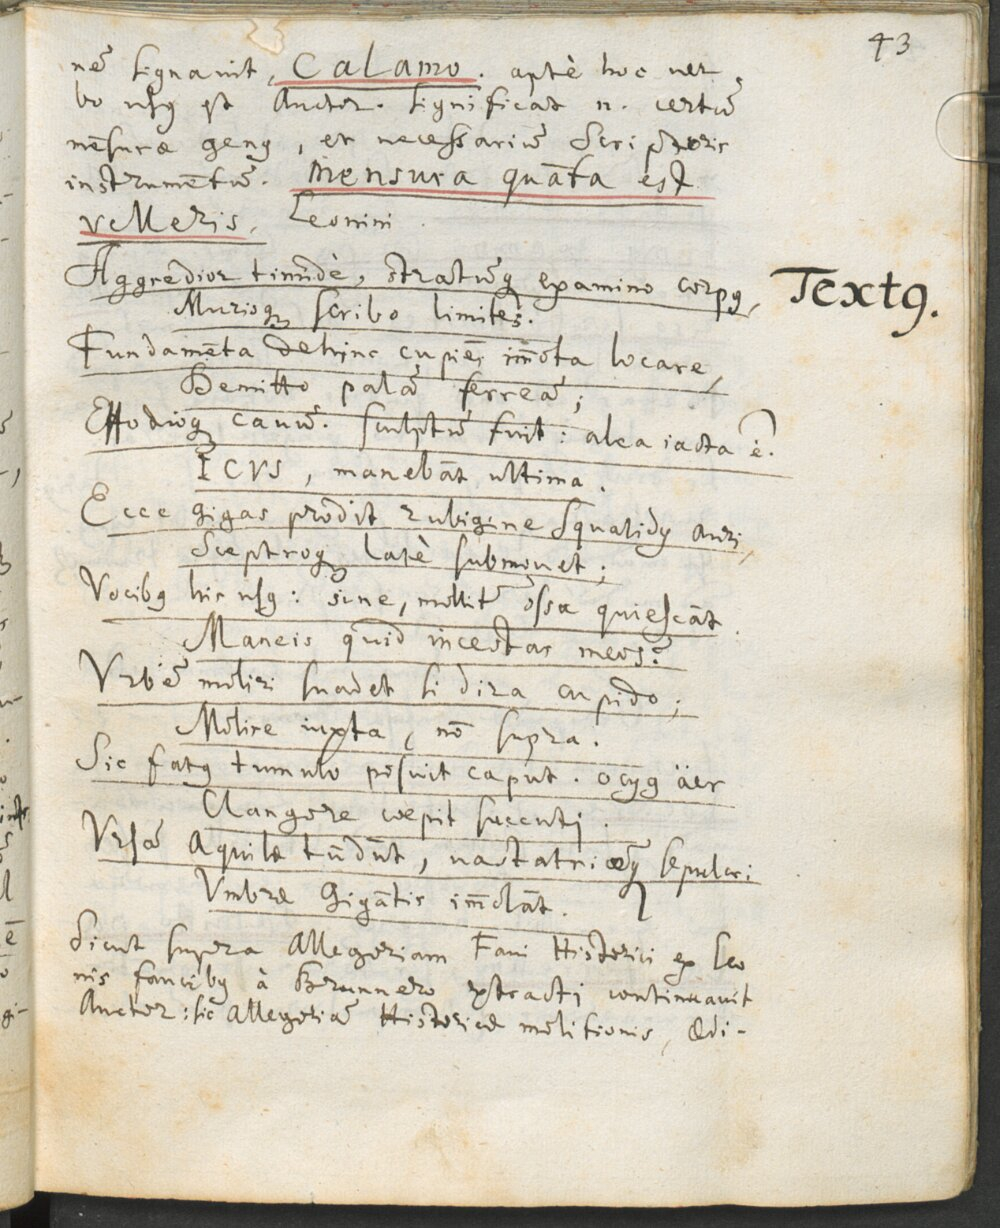 43
nē signavit, CALAMO. aptè hoc ver
bo usq; est Auctor. significat n. certū
mēsuræ genq, et necessariū Scriptoris
instrumētū. Mensura quāta est
velleris, Leonini.
Textq.
Aggredior timidè, stratūq; examino corpq,
Murisq; scribo limites.
Fundamēta dehinc cupiēs im̄ota locare,
Demitto palā ferreā;
Effodioq; cavū. sculptū fuit: alea iacta ē.
ICVS, manebāt ultima.
Ecce gigas prodit rubigine squalidq auri,
Sceptroq; latè submovet;
Vocibq his usq: sine, mollitr ossa quiescāt
Maneis quid incestas meos?
Vrbē moliri suadet si dira cupido;
Molire iuxta, nō supra.
Sic fatq tumulo posuit caput. ocyq äer
Clangore coepit succuti
Vrsā Aquilæ tūdūt, vastatricēq; sepulcri
Vmbræ Gigātis im̄olāt.
Sicut supra Allegoriam Favi Historici ex Leo
nis faucibq à Brunnero extracti continuavit
Auctor: sic Allegoriā Historicæ molitionis, Ædi-